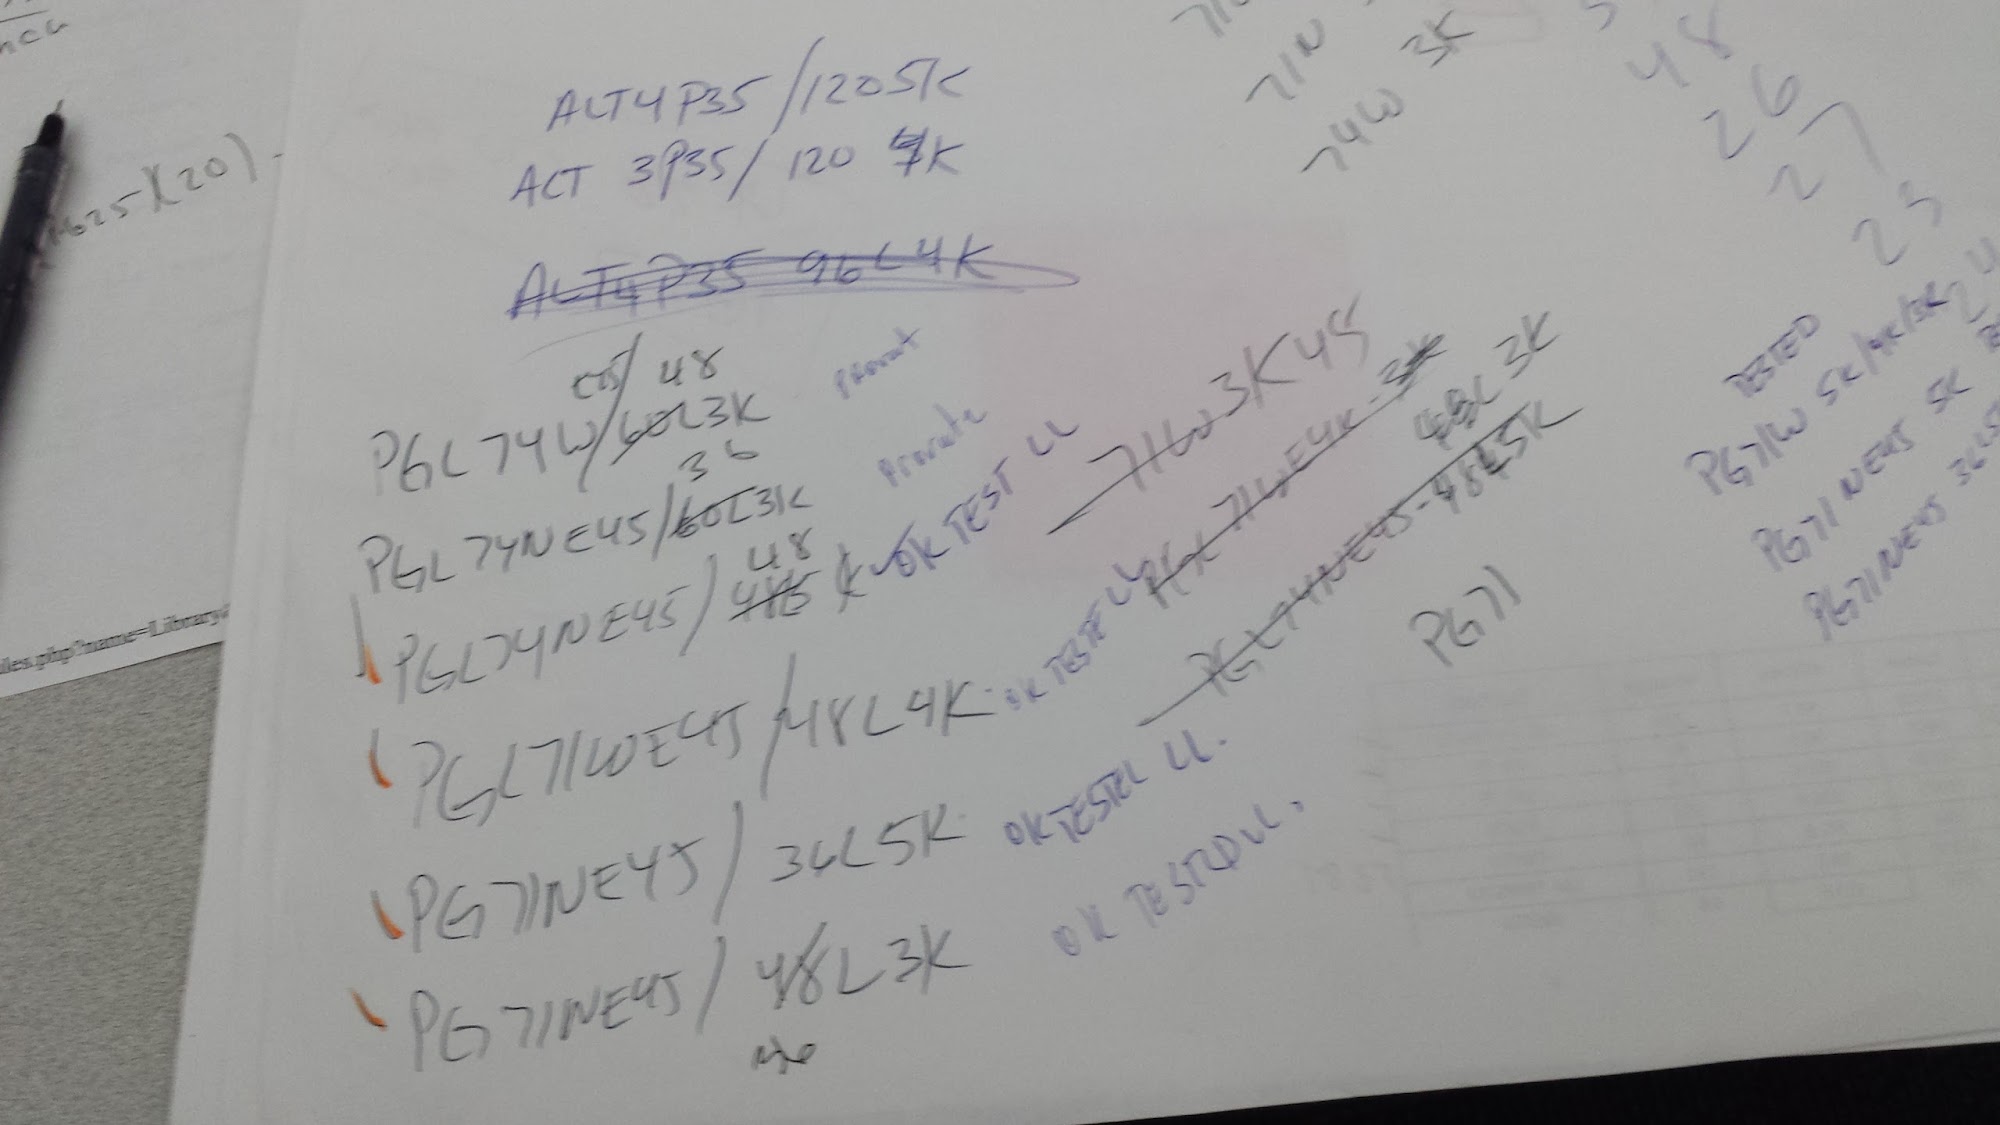 625-1(20).
les.php?name=Library
ALT4P35/1205K
ACT 3P35/120 4K
ALT4P35 96L4K
48
PGL74W/60L3K
36
PGL74NE45/60L3K
Private
48
PGL74NE45/ K OK TEST LL
PGL71WE45/48L4K OK TESTE LL
PG71NE45/36L5K OK TESTE LL.
PG71NE45/48L3K OK TESTED LL.
71W 3K 48
71WE4K-3K
48L 3K
PGL74NE45-48L5K
PG71
71N
74W 3K
48
26
27
23
TESTED
PG71W 5K/4K/3K
PG71NE45 5K
PG71NE45 36L5